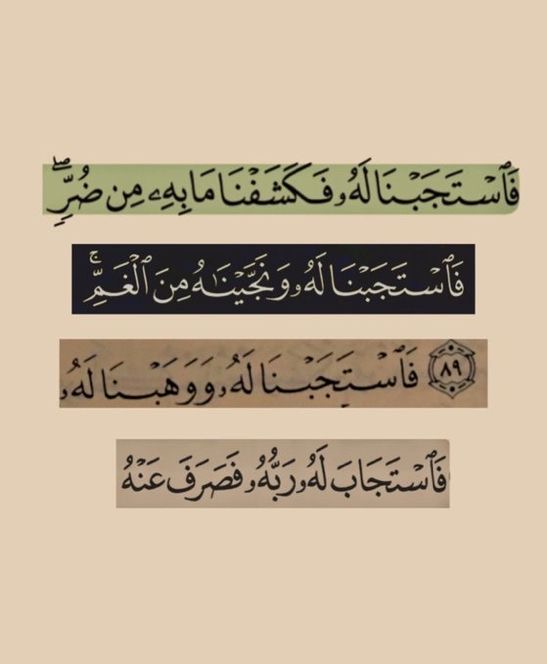 فَٱسْتَجَبْنَا لَهُۥ فَكَشَفْنَا مَا بِهِۦ مِن ضُرٍّۖ
فَٱسْتَجَبْنَا لَهُۥ وَنَجَّيْنَٰهُ مِنَ ٱلْغَمِّۚ
٨٩ فَٱسْتَجَبْنَا لَهُۥ وَوَهَبْنَا لَهُۥ
فَٱسْتَجَابَ لَهُۥ رَبُّهُۥ فَصَرَفَ عَنْهُ